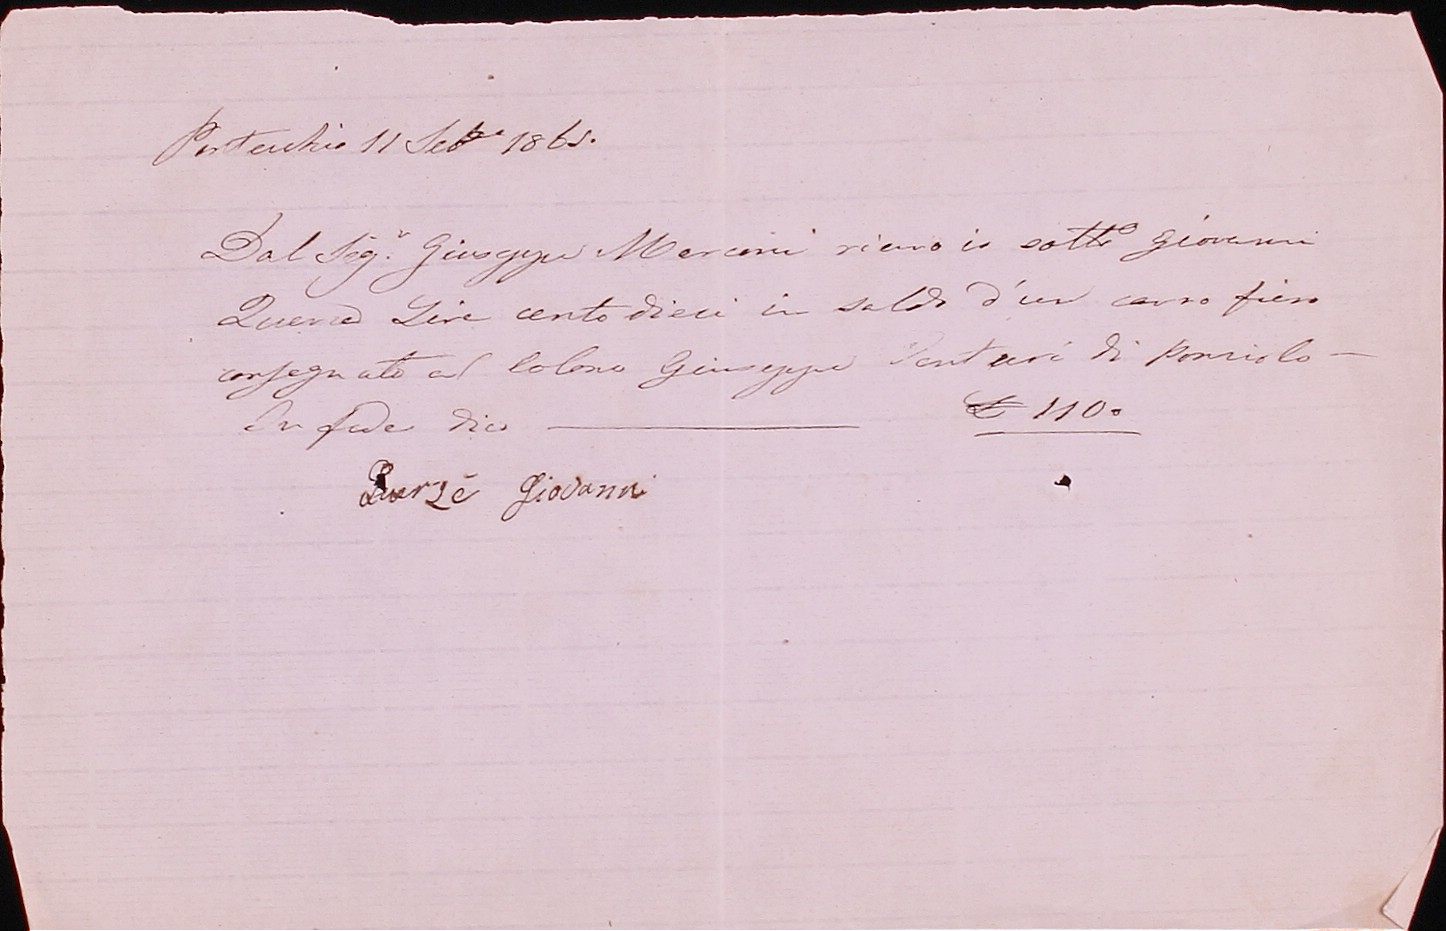 Pontecchio 11 Sebre 1865.
Dal Sigr. Giuseppe Marconi ricevo io sotto Giovanni
Querzè Lire cento dieci in saldo d'un carro fieno
consegnato al Colono Giuseppe Venturi di
In fede dico £ 110.
Querzè Giovanni